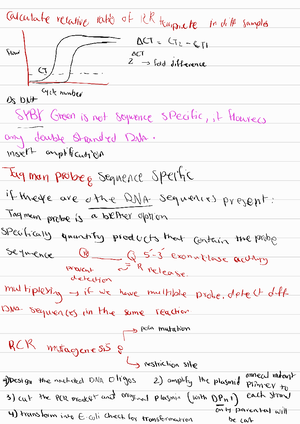 Calculate relative ratio of PCR template in diff samples
Fluor
ΔCT = CT2 - CT1
ΔCT
2 → fold difference
CT
Cycle number
Ds DNA
SYBR Green is not sequence specific, it fluoresces
any double stranded DNA.
insert amplification
Taqman probe: sequence specific
if there are other DNA sequences present:
Taqman probe is a better option
Specifically quantify products that contain the probe
sequence R Q 5'-3' exonuclease activity
prevent detection → R release.
multiplexing → if we have multiple probe, detect diff
DNA sequences in the same reaction
→ point mutation
PCR mutagenesis:
→ restriction site
1) Design the mutated DNA oligos 2) amplify the plasmid anneal mutant primer to each strand
3) cut the PCR product and original plasmid (with DPn1) only parental will be cut
4) transform into E-coli check for transformation